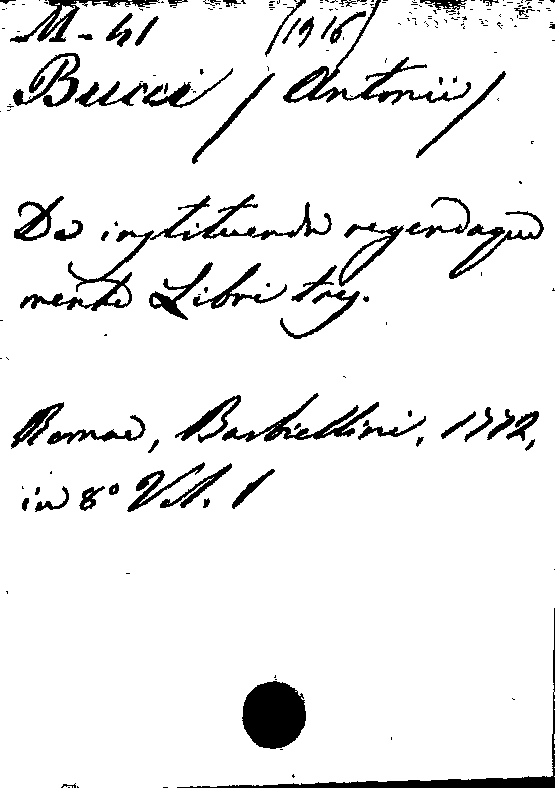 M-41 (1916)
Bucci / Antonii /
De instituenda regendaque
mente Libri tres.
Romae, Barbiellini, 1772,
in 8° Vol. 1